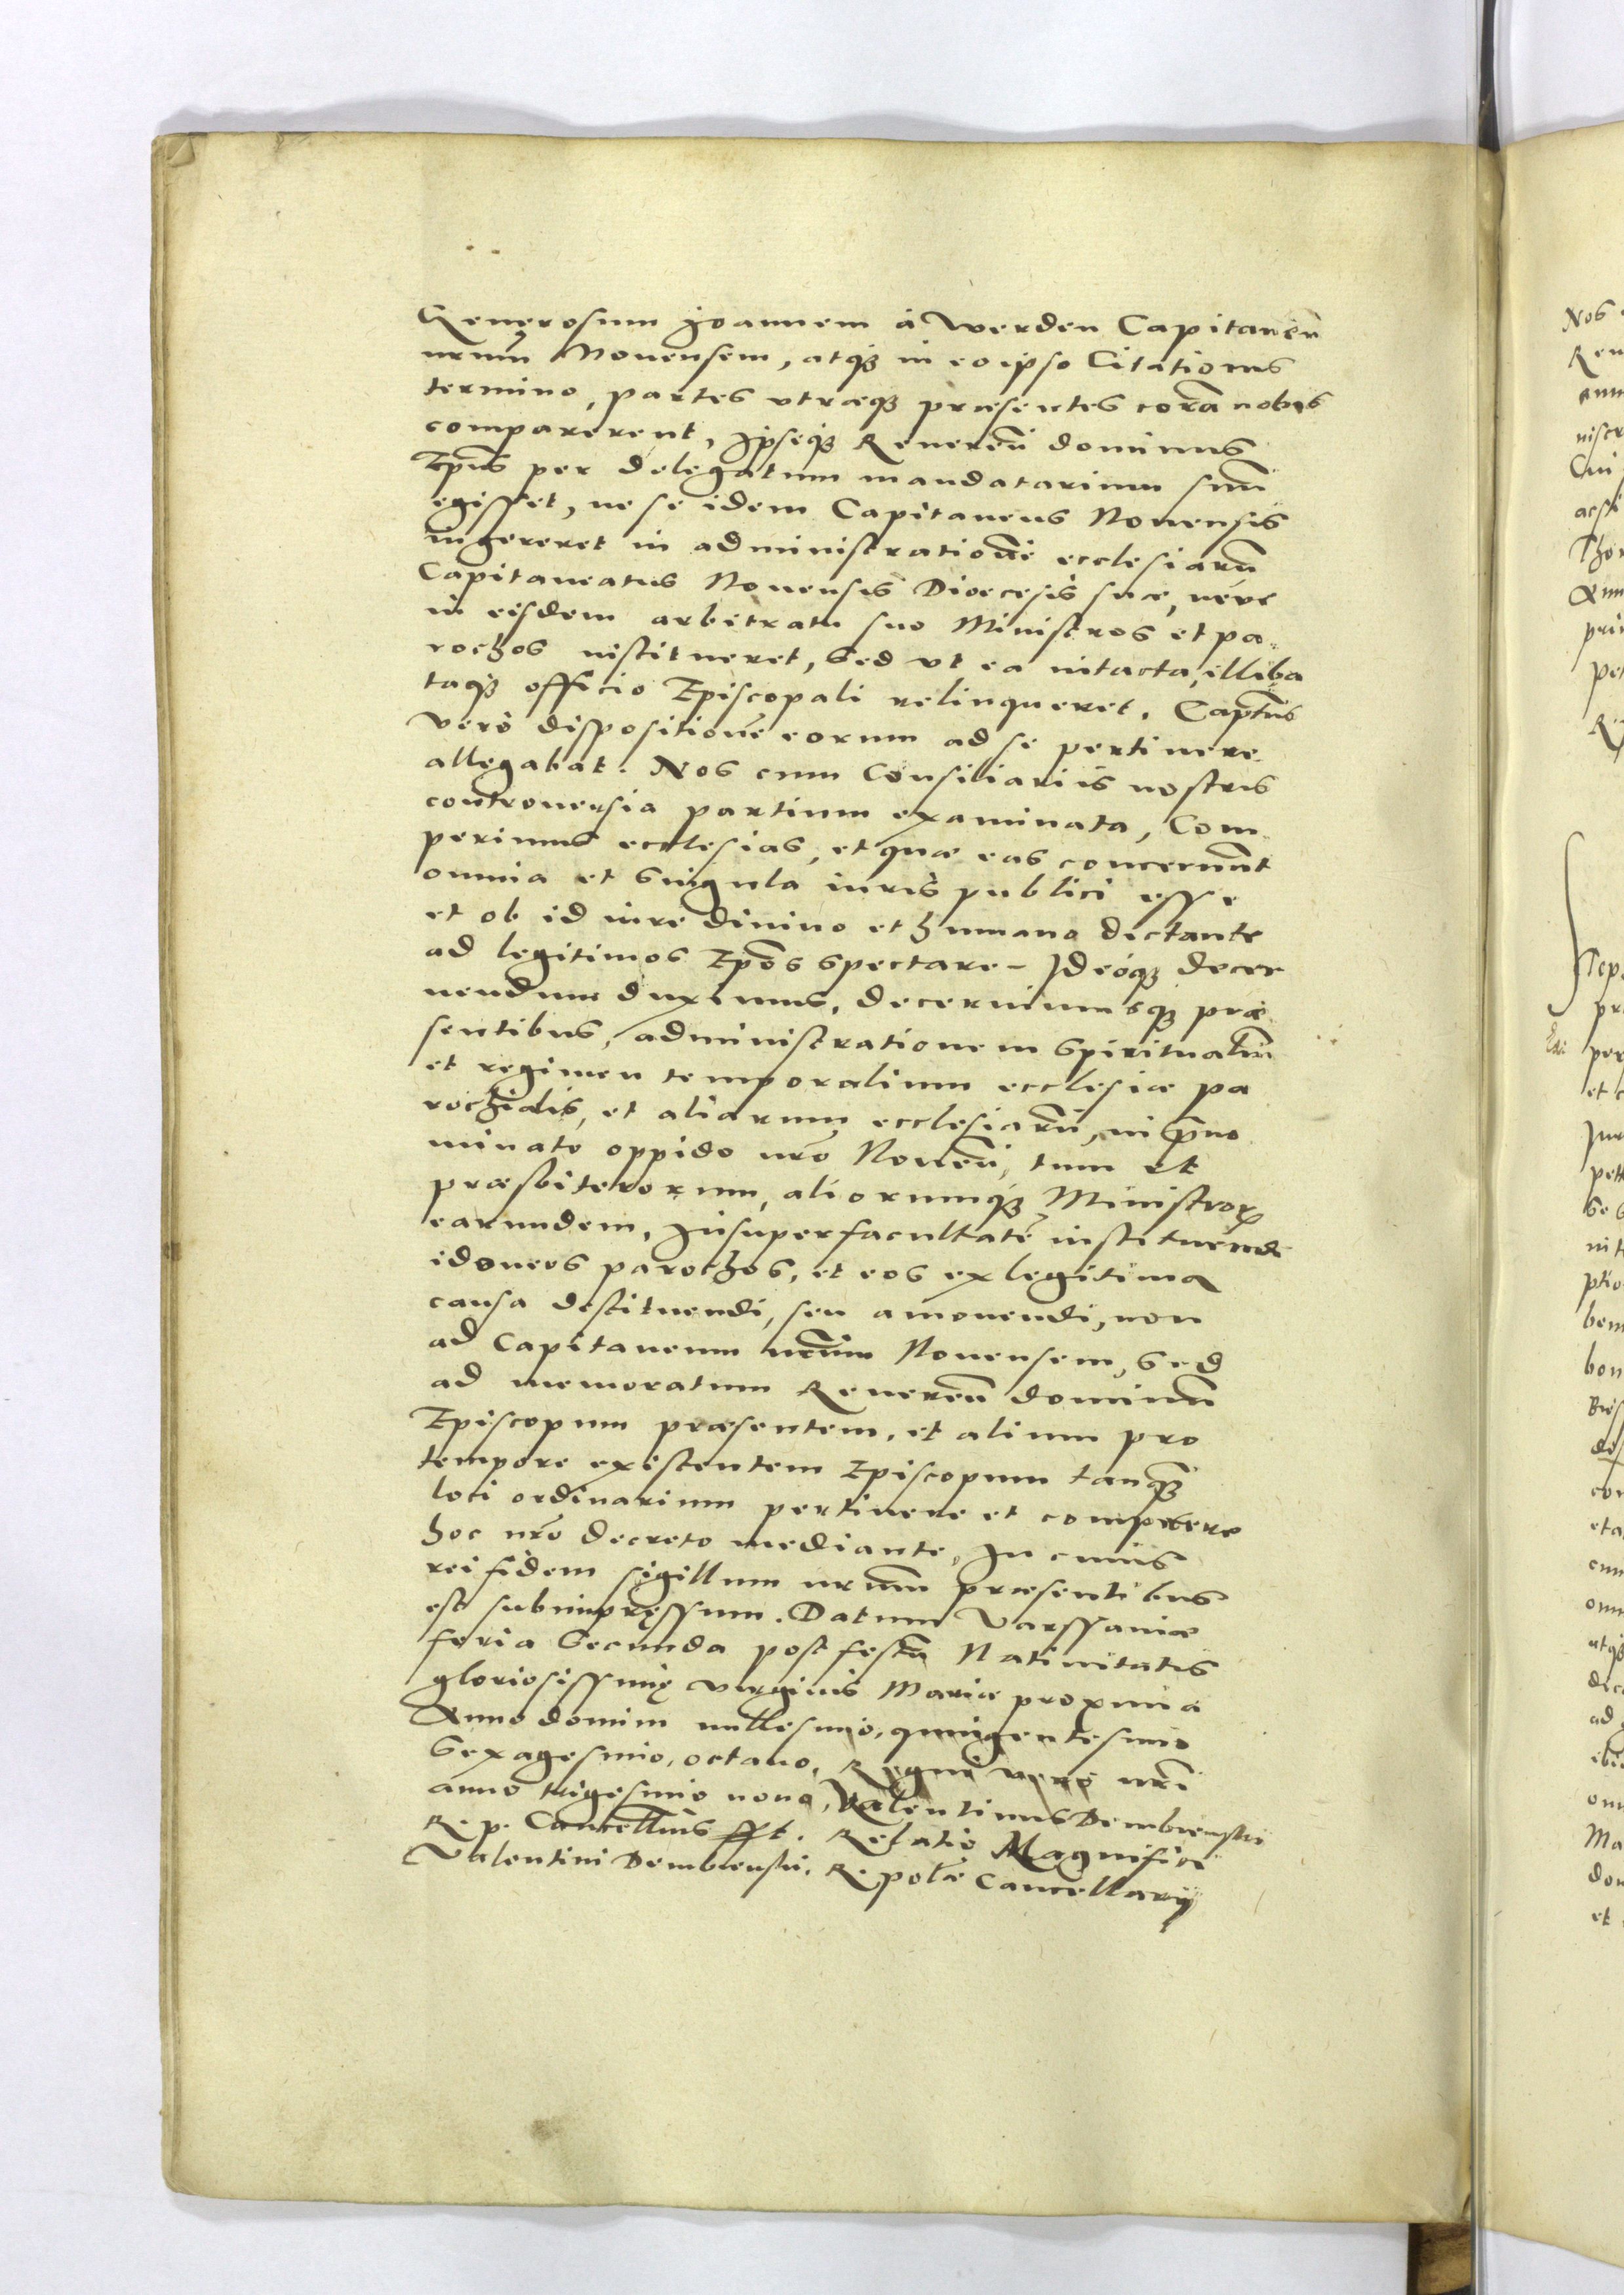 Generosum Joannem à Werden Capitaneũ
nrum̃ Nouensem, atq̃ in eo ipso Citationis
termino, partes vtræq̃ præsentes corã nobis
comparerent, Ipseq̃ Reuereñ dominus
Ep̃us per delegatum mandatarium suũ
egisset, ne se idem Capitaneus Nouensis
ingereret in administrationẽ ecclesiarũ
Capitaneatus Nouensis Dioecesis suæ, neve
in eisdem arbitratu suo Ministros et pa-
rochos institueret, Sed vt ea intacta, illiba
taq̃ officio Episcopali relinqueret. Captñs
verò dispositionẽ eorum ad se pertinere
allegabat. Nos cum Consiliariis nostris
controuersia partium examinata, Com
perimus ecclesias, et quæ eas concernunt
omnia et Singula iuris publici esse
et ob id iure diuino et humano dictante
ad legitimos Ep̃os spectare - Ideoq̃ decer
nendum duximus, decernimusq̃ præ
sentibus, administrationem Spiritualiũ
et regimen temporalium ecclesiæ pa
rochialis, et aliarum ecclesiarũ, in p̃no
minato oppido nrõ Noueñ, tum et
præsbiterorum, aliorumq̃ Ministroꝝ
earundem, Insuper facultatẽ instituendi
idoneos parochos, et eos ex legitima
causa destituendi, seu amouendi, non
ad Capitaneum nrũm Nouensem, Sed
ad memoratum Reuereñ dominũ
Episcopum præsentem, et alium pro
tempore existentem Episcopum tanq̃
loci ordinarium pertinere et competere
hoc nrõ decreto mediante, In cuius
rei fidem sigillum nrum̃ præsentibus
est subimpręssum. Datum Varssauiæ
feria Secunda post festũ Natiuitatis
gloriosissimę virginis Mariæ proxima
Anno domini millesimo, quingentesimo
Sexagesimo, octauo, Regni vero nrĩ
anno trigesimo nono, Valentinus Dembienski
R. p. Cancellũs sst. Relatio Magnifici
Valentini Dembienski. R. poł̃æ Cancellarij